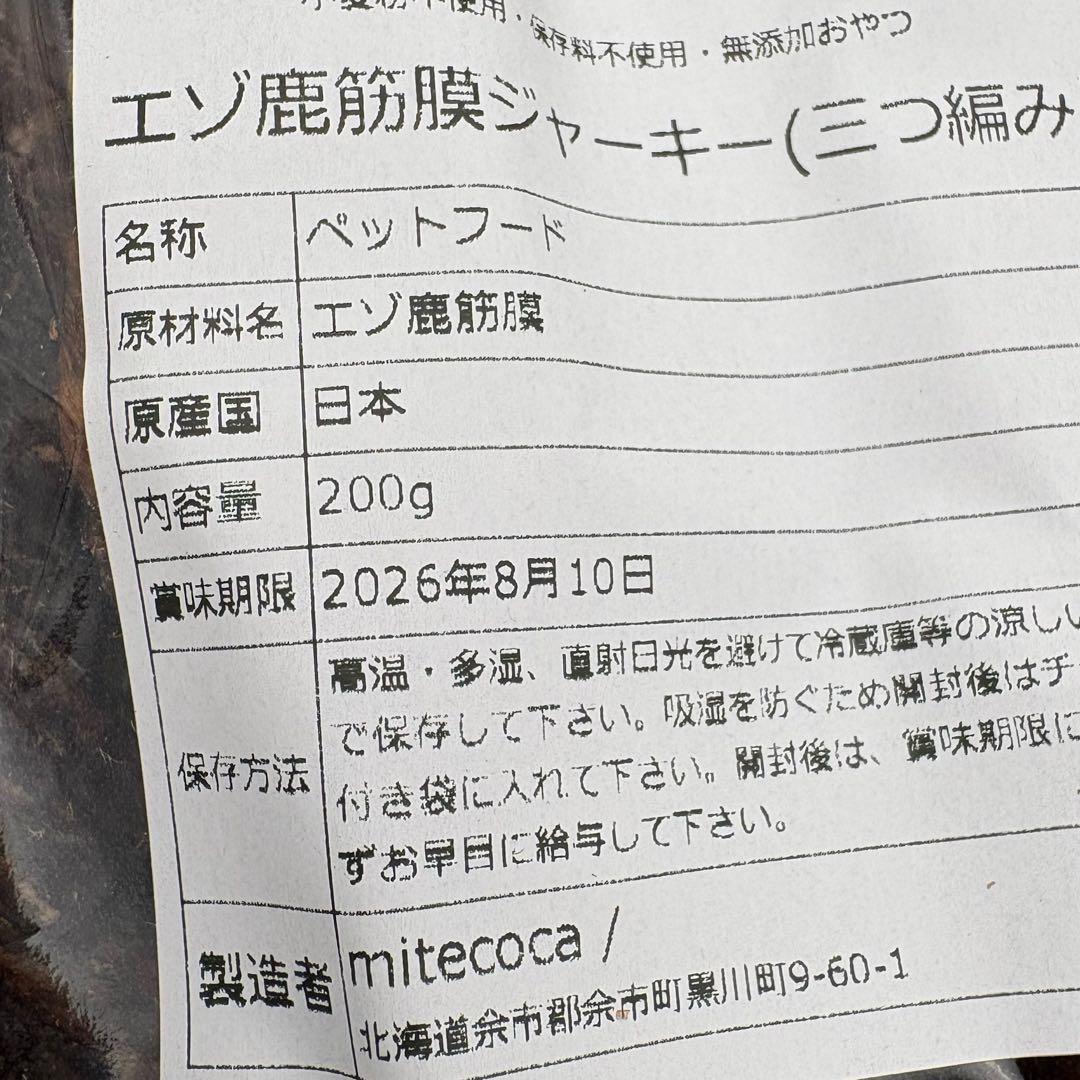 小麦粉不使用・保存料不使用・無添加おやつ
エゾ鹿筋膜ジャーキー(三つ編み
名称 ペットフード
原材料名 エゾ鹿筋膜
原産国 日本
内容量 200g
賞味期限 2026年8月10日
保存方法 高温・多湿、直射日光を避けて冷蔵庫等の涼しい
で保存して下さい。吸湿を防ぐため開封後はチ
付き袋に入れて下さい。開封後は、賞味期限に
ずお早目に給与して下さい。
製造者 mitecoca /
北海道余市郡余市町黒川町9-60-1